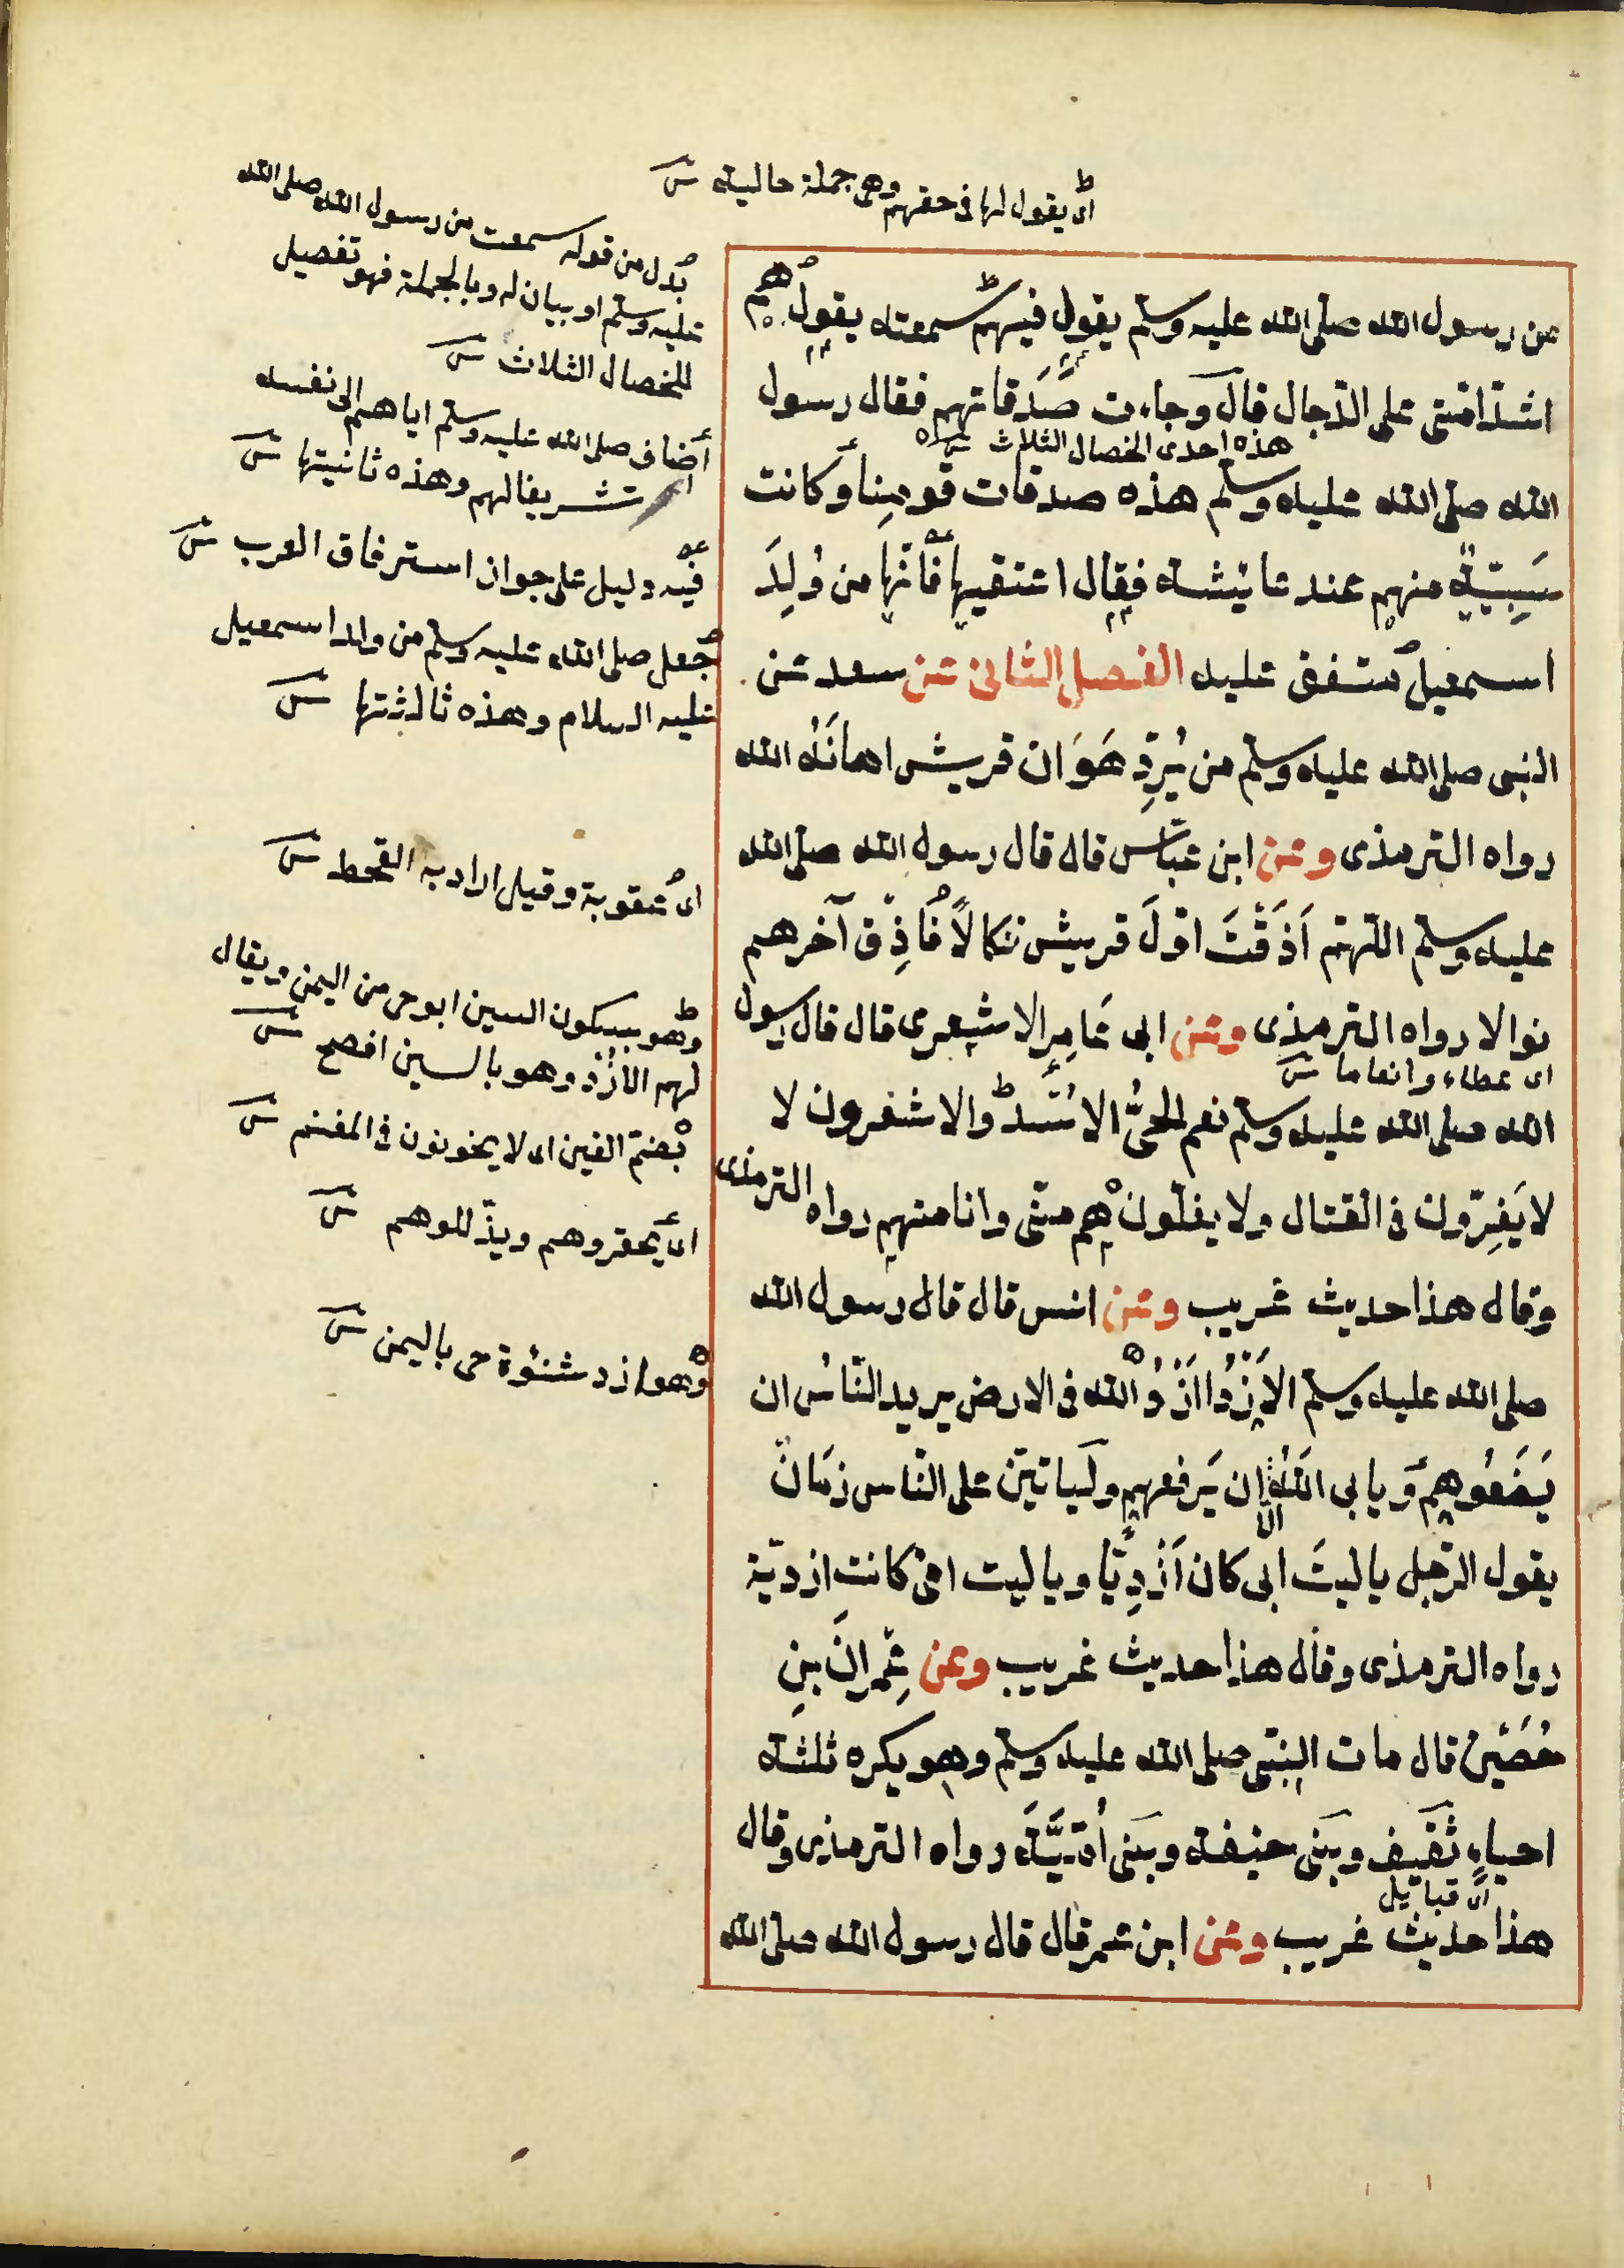 اى يقول لها فى حقهم وهى جملة حالية ش
عن رسول الله صلى الله عليه وسلم يقول فيهم سمعته يقول هم
اشد امتى على الدجال قال وجاءت صَدَقاتهم فقال رسول
هذه احدى الخصال الثلاث ش
الله صلى الله عليه وسلم هذه صدقات قومِنا وكانت
سَبِيّة منهم عند عائيشة فقال اعتقيها فانّها من وُلِدَ
اسمعيل متفق عليه الفصل الثانى عن سعد عن
النبى صلى الله عليه وسلم من يُرِدْ هَوَان قريش اهانَهُ الله
رواه الترمذى وعن ابن عبّاس قال قال رسول الله صلى الله
عليه وسلم اللّهمّ اَذَقْتَ اوّلَ قريش نكالًا فَاذِق آخرهم
نوالا رواه الترمذى وعن ابى عَامِرِ الاشعرى قال قال رسول
اى عطاء وانعاما ش
الله صلى الله عليه وسلم نعم الحىُّ الاسْد والاشعرون لا
لا يَفِرّون فى القتال ولا يغلّون هم منّى وانا منهم رواه الترمذى
وقال هذا حديث غريب وعن انس قال قال رسول الله
صلى الله عليه وسلم الاَزْدُ اَزْدُ الله فى الارض يريد النّاسُ ان
يَضَعُوهم ويابى اللهُ الا ان يَرفعهم ولَياتينّ على النّاس زمَان
يقول الرّجل ياليتَ ابى كان اَزْدِيّا وياليت امّى كانت ازديّة
رواه الترمذى وقال هذا حديث غريب وعن عِمْرانَ بنِ
حُصَيْن قال مات النبىّ صلى الله عليه وسلم وهو يكره ثلثة
احياءٍ ثَقيف وبَنى حنيفة وبَنى اُمَيَّةَ رواه الترمذى وقال
اى قبايل
هذا حديث غريب وعن ابن عمر قال قال رسول الله صلى الله
بدل من قوله سمعت من رسول الله صلى الله
عليه وسلم او بيان له وبالجملة فهو تفصيل
للخصال الثلاث ش
أضاف صلى الله عليه وسلم اياهم الى نفسه
تشريفا لهم وهذه ثانيتها ش
فيه دليل على جواز استرقاق العرب ش
جعل صلى الله عليه وسلم من ولد اسمعيل
عليه السلام وهذه ثالثتها ش
اى عقوبة وقيل اراد به القحط ش
وهو بسكون السين ابو حى من اليمن ويقال
لهم الازْد وهو بالسين افصح ش
بضم الغين اى لا يخونون فى المغنم ش
اى يحقروهم ويذّللوهم ش
وهو ازد شنئوة حى باليمن ش